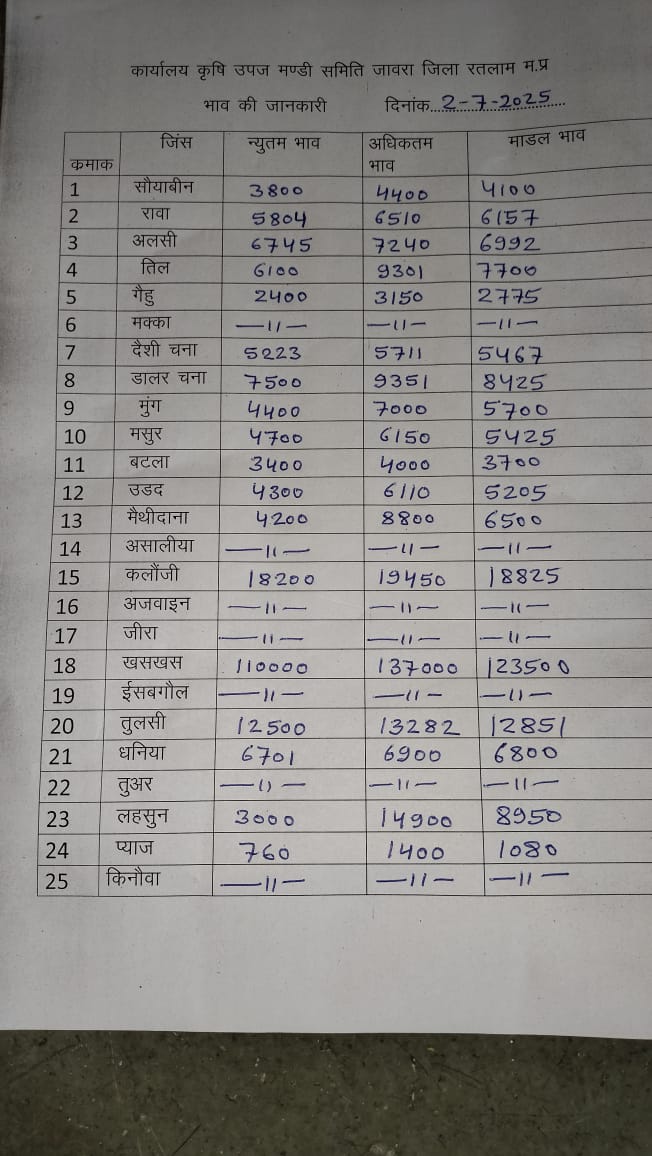 कार्यालय कृषि उपज मण्डी समिति जावरा जिला रतलाम म.प्र
भाव की जानकारी दिनांक...2-7-2025...
कमाक जिंस न्युतम भाव अधिकतम भाव माडल भाव
1 सौयाबीन 3800 4400 4100
2 रावा 5804 6510 6157
3 अलसी 6745 7240 6992
4 तिल 6100 9301 7700
5 गैहु 2400 3150 2775
6 मक्का —11— —11— —11—
7 दैशी चना 5223 5711 5467
8 डालर चना 7500 9351 8425
9 मुंग 4400 7000 5700
10 मसुर 4700 6150 5425
11 बटला 3400 4000 3700
12 उडद 4300 6110 5205
13 मैथीदाना 4200 8800 6500
14 असालीया —11— —11— —11—
15 कलौंजी 18200 19450 18825
16 अजवाइन —11— —11— —11—
17 जीरा —11— —11— —11—
18 खसखस 110000 137000 123500
19 ईसबगौल —11— —11— —11—
20 तुलसी 12500 13282 12851
21 धनिया 6701 6900 6800
22 तुअर —11— —11— —11—
23 लहसुन 3000 14900 8950
24 प्याज 760 1400 1080
25 किनौवा —11— —11— —11—